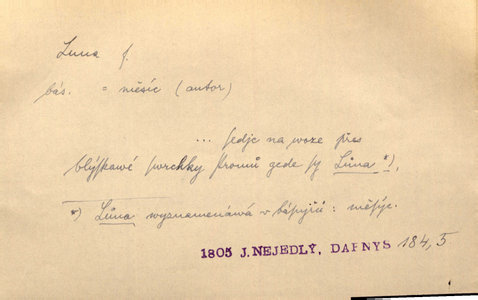 Luna f.
bás. = měsíc (autor)
... sedjc na woze přes
blýskawé swrchky stromů gede sy Lůna *),
*) Lůna wyznamenáwá v básnjřů : měsýc.
1805 J. NEJEDLÝ, DAFNYS 184,5